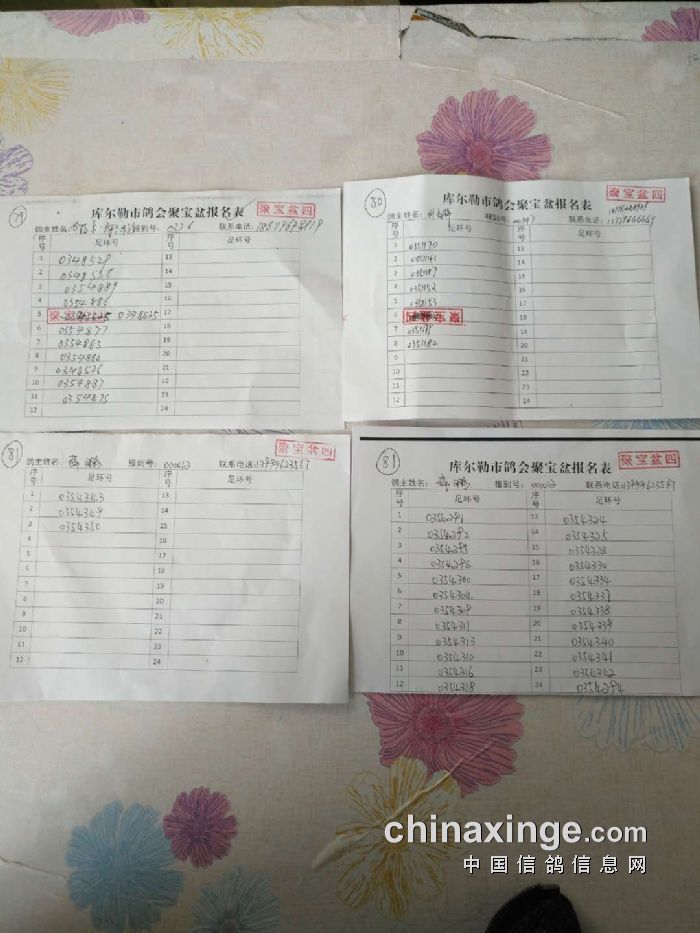 79
聚宝盆四
库尔勒市鸽会聚宝盆报名表
鸽主姓名: 报到号: 0376 联系电话:
序号 足环号 序号 足环号
1 0348529 13
2 0348556 14
3 0354889 15
4 0354886 16
5 0348525 17
6 0354877 18
7 0354885 19
8 0354880 20
9 0348526 21
10 0354887 22
11 0354875 23
12 24
80
聚宝盆四
库尔勒市鸽会聚宝盆报名表
鸽主姓名: 报到号: 联系电话:
序号 足环号 序号 足环号
1 13
2 14
3 15
4 16
5 17
6 18
7 19
8 20
9 21
10 22
11 23
12 24
81
聚宝盆四
鸽主姓名: 薛鹏 报到号: 000012 联系电话: 13999623567
序号 足环号 序号 足环号
1 0354343 13
2 0354349 14
3 0354350 15
4 16
5 17
6 18
7 19
8 20
9 21
10 22
11 23
12 24
81
聚宝盆四
库尔勒市鸽会聚宝盆报名表
鸽主姓名: 薛鹏 报到号: 000012 联系电话: 13999623567
序号 足环号 序号 足环号
1 0354291 13 0354324
2 0354292 14 0354325
3 0354295 15 0354328
4 0354298 16 0354330
5 0354300 17 0354334
6 0354304 18 0354337
7 0354309 19 0354338
8 0354311 20 0354339
9 0354313 21 0354340
10 0354310 22 0354341
11 0354316 23 0354342
12 0354318 24 0354294
chinaxinge.com
中国信鸽信息网